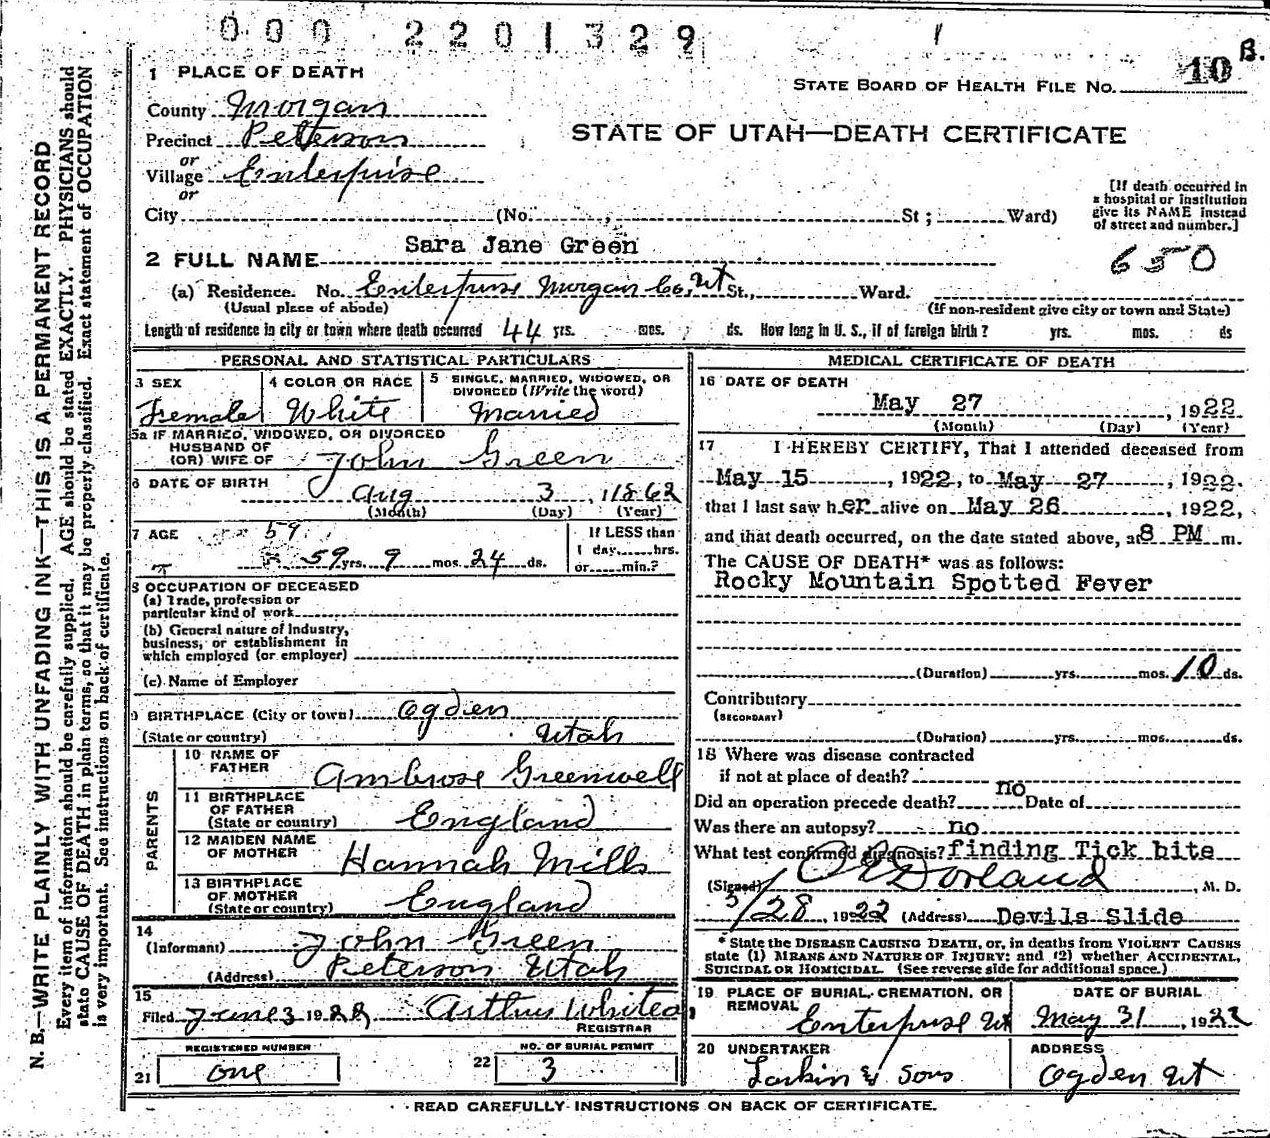 000 2201329
1 PLACE OF DEATH
STATE BOARD OF HEALTH FILE NO. 10 B.
County Morgan
Precinct Petterson
STATE OF UTAH—DEATH CERTIFICATE
or
Village Enterprise
or
City (No. , St ; Ward)
[If death occurred in a hospital or institution give its NAME instead of street and number.]
650
2 FULL NAME Sara Jane Green
(a) Residence. No. Enterprise Morgan Co, Ut St., Ward.
(Usual place of abode) (If non-resident give city or town and State)
Length of residence in city or town where death occurred 44 yrs. mos. ds. How long in U. S., if of foreign birth? yrs. mos. ds
PERSONAL AND STATISTICAL PARTICULARS
3 SEX
Female
4 COLOR OR RACE
White
5 SINGLE, MARRIED, WIDOWED, OR DIVORCED (Write the word)
Married
5a IF MARRIED, WIDOWED, OR DIVORCED
HUSBAND OF
(OR) WIFE OF John Green
6 DATE OF BIRTH
Aug 3, 1862
(Month) (Day) (Year)
7 AGE
59
59 yrs. 9 mos. 24 ds.
If LESS than
1 day, hrs.
or min.?
8 OCCUPATION OF DECEASED
(a) Trade, profession or
particular kind of work
(b) General nature of Industry,
business, or establishment in
which employed (or employer)
(c) Name of Employer
9 BIRTHPLACE (City or town) Ogden
(State or country) Utah
PARENTS
10 NAME OF
FATHER Ambrose Greenwell
11 BIRTHPLACE
OF FATHER
(State or country) England
12 MAIDEN NAME
OF MOTHER Hannah Mills
13 BIRTHPLACE
OF MOTHER
(State or country) England
14
(Informant) John Green
(Address) Peterson Utah
15
Filed June 3 1922 Arthur
REGISTRAR
REGISTERED NUMBER
21 one
NO. OF BURIAL PERMIT
22 3
MEDICAL CERTIFICATE OF DEATH
16 DATE OF DEATH
May 27, 1922
(Month) (Day) (Year)
17 I HEREBY CERTIFY, That I attended deceased from
May 15, 1922, to May 27, 1922.
that I last saw her alive on May 26, 1922,
and that death occurred, on the date stated above, a 8 PM m.
The CAUSE OF DEATH* was as follows:
Rocky Mountain Spotted Fever
(Duration) yrs. mos. 10 ds.
Contributory
(SECONDARY)
(Duration) yrs. mos. ds.
18 Where was disease contracted
if not at place of death?
Did an operation precede death? no Date of
Was there an autopsy? no
What test confirmed diagnosis? finding Tick bite
(Signed) Dorland, M. D.
5/28, 1922 (Address) Devils Slide
* State the DISEASE CAUSING DEATH, or, in deaths from VIOLENT CAUSES
state (1) MEANS AND NATURE OF INJURY; and (2) whether ACCIDENTAL,
SUICIDAL OR HOMICIDAL. (See reverse side for additional space.)
19 PLACE OF BURIAL, CREMATION, OR
REMOVAL
Enterprise Ut
DATE OF BURIAL
May 31, 1922
20 UNDERTAKER
Larkin & Sons
ADDRESS
Ogden Ut
READ CAREFULLY INSTRUCTIONS ON BACK OF CERTIFICATE.
N. B.—WRITE PLAINLY WITH UNFADING INK—THIS IS A PERMANENT RECORD
Every item of information should be carefully supplied. AGE should be stated EXACTLY. PHYSICIANS should
state CAUSE OF DEATH in plain terms, so that it may be properly classified. Exact statement of OCCUPATION
is very important. See instructions on back of certificate.